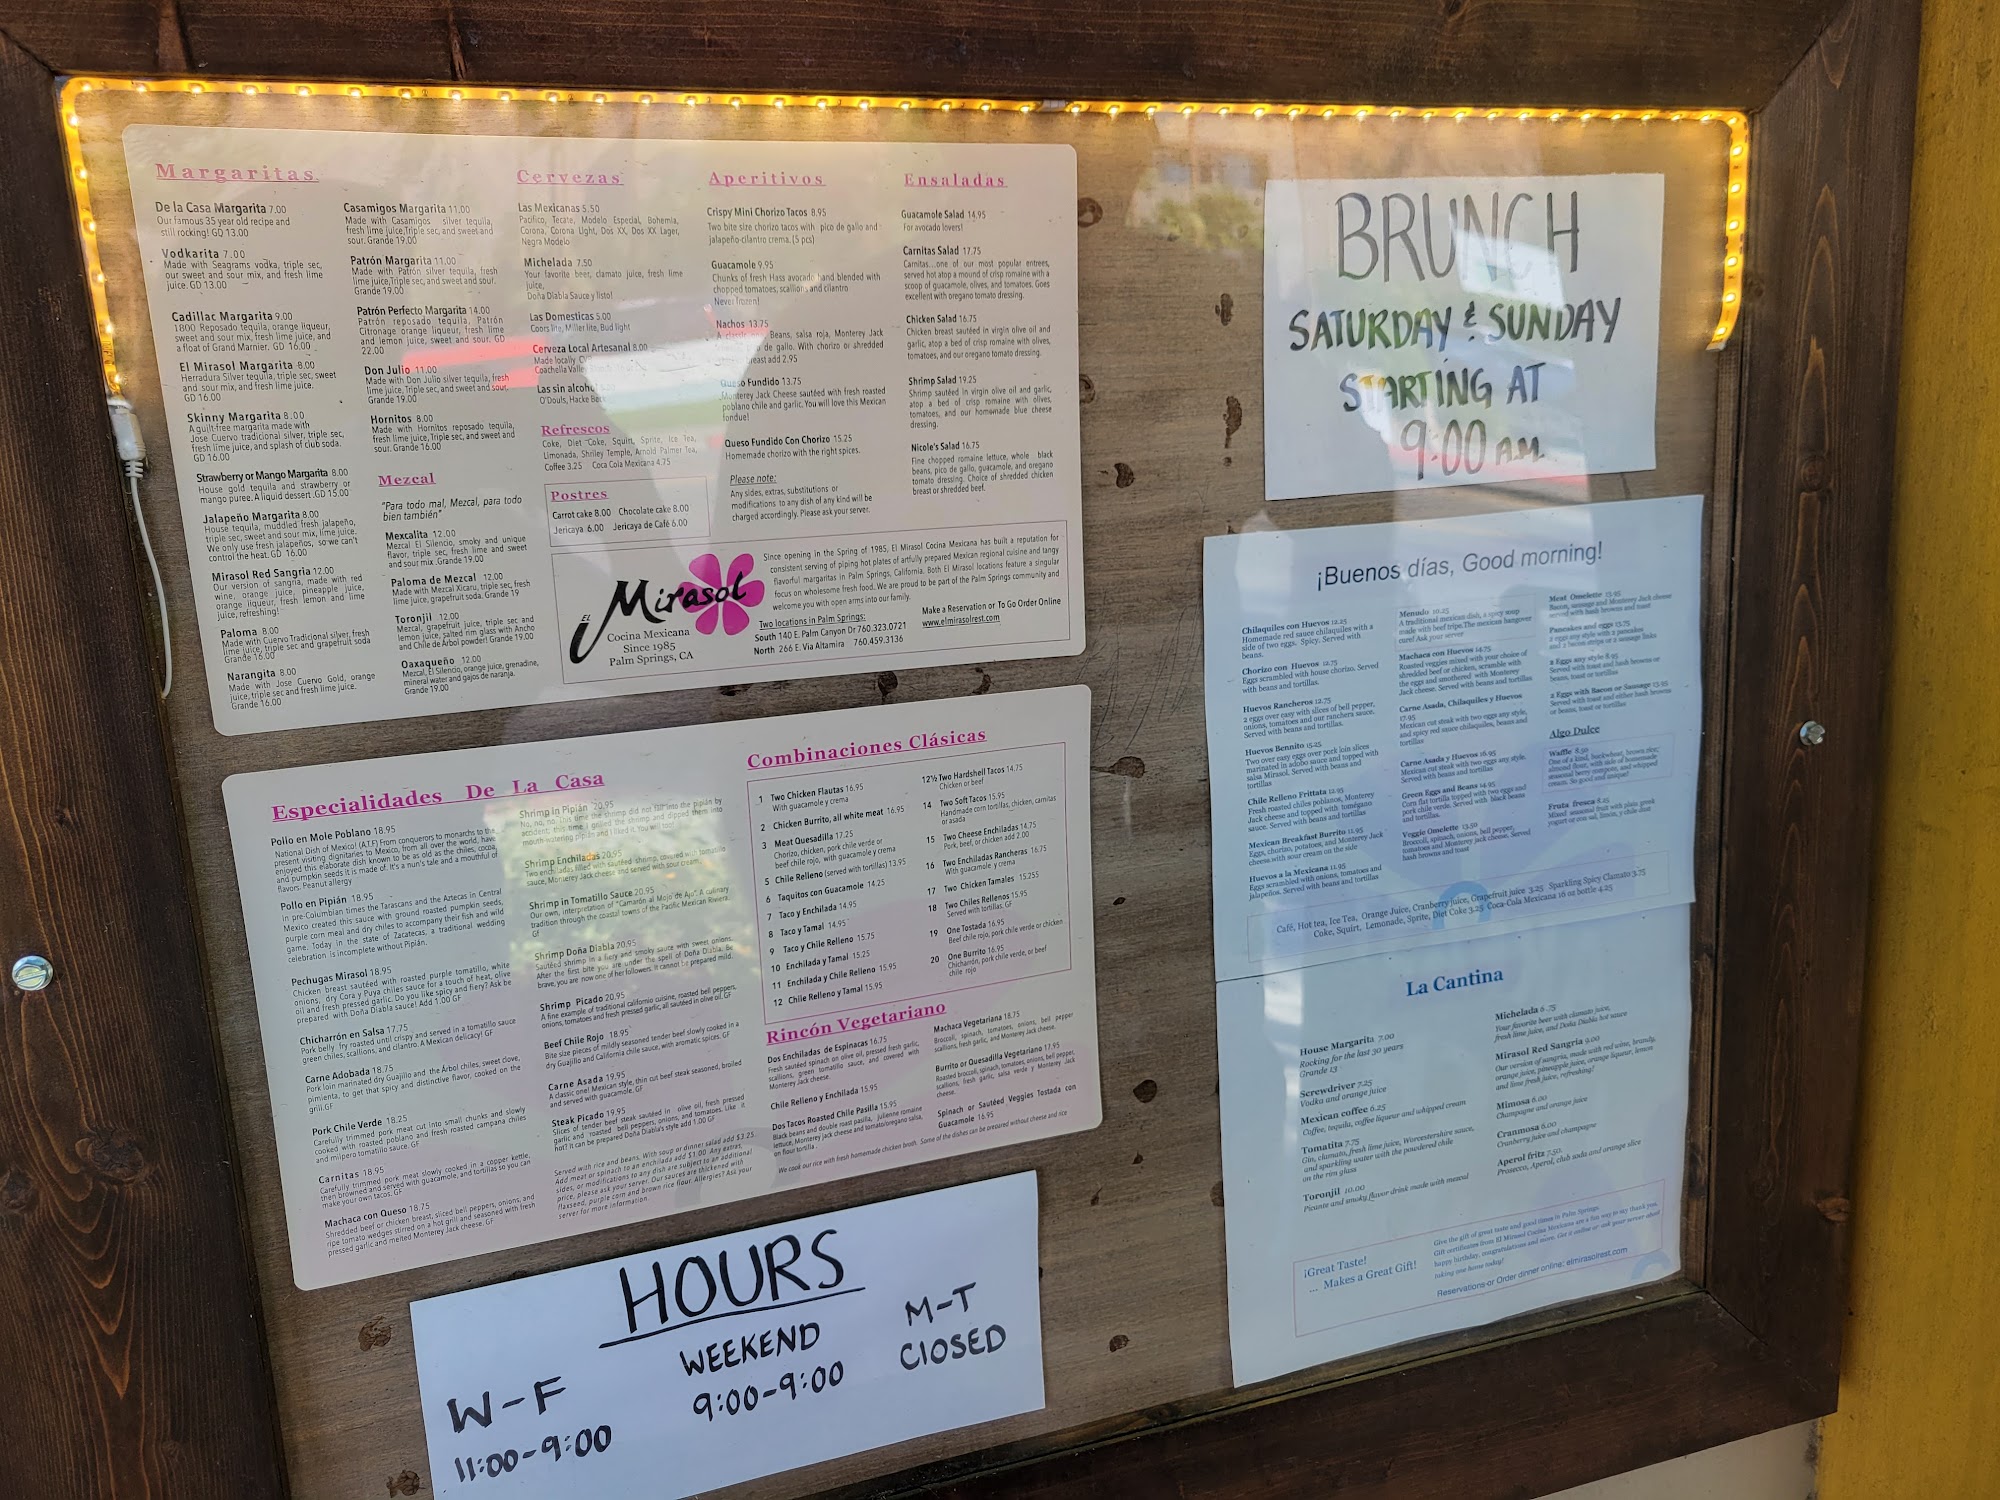 Margaritas
De la Casa Margarita 7.00
Our famous 35 year old recipe and
still rocking! GD 13.00
Vodkarita 7.00
Made with Seagrams vodka, triple sec,
our sweet and sour mix, and fresh lime
juice. GD 13.00
Cadillac Margarita 9.00
1800 Reposado tequila, orange liqueur,
sweet and sour mix, fresh lime juice, and
a float of Grand Marnier. GD 16.00
El Mirasol Margarita 8.00
Herradura Silver tequila, triple sec, sweet
and sour mix, and fresh lime juice.
GD 16.00
Skinny Margarita 8.00
A guilt-free margarita made with
Jose Cuervo tradicional silver, triple sec,
fresh lime juice, and splash of club soda.
GD 16.00
Strawberry or Mango Margarita 8.00
House gold tequila and strawberry or
mango puree. A liquid dessert .GD 15.00
Jalapeño Margarita 8.00
House tequila, muddled fresh jalapeño,
triple sec, sweet and sour mix, lime juice.
We only use fresh jalapeños, so we can't
control the heat. GD 16.00
Mirasol Red Sangria 12.00
Our version of sangria, made with red
wine, orange juice, pineapple juice,
orange liqueur, fresh lemon and lime
juice, refreshing!
Paloma 8.00
Made with Cuervo Tradicional silver, fresh
lime juice, triple sec and grapefruit soda
Grande 16.00
Narangita 8.00
Made with Jose Cuervo Gold, orange
juice, triple sec and fresh lime juice.
Grande 16.00
Casamigos Margarita 11.00
Made with Casamigos silver tequila,
fresh lime juice,Triple sec, and sweet and
sour. Grande 19.00
Patrón Margarita 11.00
Made with Patrón silver tequila, fresh
lime juice,Triple sec, and sweet and sour.
Grande 19.00
Patrón Perfecto Margarita 14.00
Patrón reposado tequila, Patrón
Citronage orange liqueur, fresh lime
and lemon juice, sweet and sour. GD
22.00
Don Julio 11.00
Made with Don Julio silver tequila, fresh
lime juice, Triple sec, and sweet and sour.
Grande 19.00
Hornitos 8.00
Made with Hornitos reposado tequila,
fresh lime juice, Triple sec, and sweet and
sour. Grande 16.00
Mezcal
"Para todo mal, Mezcal, para todo
bien también"
Mexcalita 12.00
Mezcal El Silencio, smoky and unique
flavor, triple sec, fresh lime and sweet
and sour mix .Grande 19.00
Paloma de Mezcal 12.00
Made with Mezcal Xicaru, triple sec, fresh
lime juice, grapefruit soda. Grande 19
Toronjil 12.00
Mezcal, grapefruit juice, triple sec and
lemon juice, salted rim glass with Ancho
and Chile de Árbol powder! Grande 19.00
Oaxaqueño 12.00
Mezcal, El Silencio, orange juice, grenadine,
mineral water and gajos de naranja.
Grande 19.00
Cervezas
Las Mexicanas 5.50
Pacifico, Tecate, Modelo Especial, Bohemia,
Corona, Corona Light, Dos XX, Dos XX Lager,
Negra Modelo
Michelada 7.50
Your favorite beer, clamato juice, fresh lime
juice,
Doña Diabla Sauce y listo!
Las Domesticas 5.00
Coors lite, Miller lite, Bud light
Cerveza Local Artesanal 8.00
Made locally
Coachella Valley
Las sin alcohol
O'Douls, Hacke Beck
Refrescos
Coke, Diet Coke, Squirt, Sprite, Ice Tea,
Limonada, Shriley Temple, Arnold Palmer Tea,
Coffee 3.25 Coca Cola Mexicana 4.75
Postres
Carrot cake 8.00 Chocolate cake 8.00
Jericaya 6.00 Jericaya de Café 6.00
Aperitivos
Crispy Mini Chorizo Tacos 8.95
Two bite size chorizo tacos with pico de gallo and
jalapeño-cilantro crema. (5 pcs)
Guacamole 9.95
Chunks of fresh Hass avocado hand blended with
chopped tomatoes, scallions and cilantro
Never frozen!
Nachos 13.75
A classic Beans, salsa roja, Monterey Jack
de gallo. With chorizo or shredded
breast add 2.95
Queso Fundido 13.75
Monterey Jack Cheese sautéed with fresh roasted
poblano chile and garlic. You will love this Mexican
fondue!
Queso Fundido Con Chorizo 15.25
Homemade chorizo with the right spices.
Please note:
Any sides, extras, substitutions or
modifications to any dish of any kind will be
charged accordingly. Please ask your server.
Ensaladas
Guacamole Salad 14.95
For avocado lovers!
Carnitas Salad 17.75
Carnitas...one of our most popular entrees,
served hot atop a mound of crisp romaine with a
scoop of guacamole, olives, and tomatoes. Goes
excellent with oregano tomato dressing.
Chicken Salad 16.75
Chicken breast sautéed in virgin olive oil and
garlic, atop a bed of crisp romaine with olives,
tomatoes, and our oregano tomato dressing.
Shrimp Salad 19.25
Shrimp sautéed in virgin olive oil and garlic,
atop a bed of crisp romaine with olives,
tomatoes, and our homemade blue cheese
dressing.
Nicole's Salad 16.75
Fine chopped romaine lettuce, whole black
beans, pico de gallo, guacamole, and oregano
tomato dressing. Choice of shredded chicken
breast or shredded beef.
EL Mirasol
Cocina Mexicana
Since 1985
Palm Springs, CA
Since opening in the Spring of 1985, El Mirasol Cocina Mexicana has built a reputation for
consistent serving of piping hot plates of artfully prepared Mexican regional cuisine and tangy
flavorful margaritas in Palm Springs, California. Both El Mirasol locations feature a singular
focus on wholesome fresh food. We are proud to be part of the Palm Springs community and
welcome you with open arms into our family.
Two locations in Palm Springs:
South 140 E. Palm Canyon Dr 760.323.0721
North 266 E. Via Altamira 760.459.3136
Make a Reservation or To Go Order Online
www.elmirasolrest.com
Especialidades De La Casa
Pollo en Mole Poblano 18.95
National Dish of Mexico! (A.T.F) From conquerors to monarchs to the
present visiting dignitaries to Mexico, from all over the world, have
enjoyed this elaborate dish known to be as old as the chiles, cocoa,
and pumpkin seeds it is made of. It's a nun's tale and a mouthful of
flavors. Peanut allergy
Pollo en Pipián 18.95
In pre-Columbian times the Tarascans and the Aztecs in Central
Mexico created this sauce with ground roasted pumpkin seeds,
purple corn meal and dry chiles to accompany their fish and wild
game. Today in the state of Zacatecas, a traditional wedding
celebration is incomplete without Pipián.
Pechugas Mirasol 18.95
Chicken breast sautéed with roasted purple tomatillo, white
onions, dry Cora y Puya chiles sauce for a touch of heat, olive
oil and fresh pressed garlic. Do you like spicy and fiery? Ask be
prepared with Doña Diabla sauce! Add 1.00 GF
Chicharrón en Salsa 17.75
Pork belly fry roasted until crispy and served in a tomatillo sauce
green chiles, scallions, and cilantro. A Mexican delicacy! GF
Carne Adobada 18.75
Pork loin marinated dry Guajillo and the Árbol chiles, sweet clove,
pimienta, to get that spicy and distinctive flavor, cooked on the
grill.GF
Pork Chile Verde 18.25
Carefully trimmed pork meat cut into small chunks and slowly
cooked with roasted poblano and fresh roasted campana chiles
and milpero tomatillo sauce. GF
Carnitas 18.95
Carefully trimmed pork meat slowly cooked in a copper kettle,
then browned and served with guacamole, and tortillas so you can
make your own tacos. GF
Machaca con Queso 18.75
Shredded beef or chicken breast, sliced bell peppers, onions, and
ripe tomato wedges stirred on a hot grill and seasoned with fresh
pressed garlic and melted Monterey Jack cheese. GF
Shrimp in Pipián 20.95
No, no, no. This time the shrimp did not fall into the pipián by
accident; this time I grilled the shrimp and dipped them into
mouth-watering pipián and I liked it. You will too!
Shrimp Enchiladas 20.95
Two enchiladas filled with sautéed shrimp, covered with tomatillo
sauce, Monterey Jack cheese and served with sour cream.
Shrimp in Tomatillo Sauce 20.95
Our own, interpretation of "Camarón al Mojo de Ajo". A culinary
tradition through the coastal towns of the Pacific Mexican Riviera.
GF
Shrimp Doña Diabla 20.95
Sautéed shrimp in a fiery and smoky sauce with sweet onions.
After the first bite you are under the spell of Doña Diabla. Be
brave, you are now one of her followers. It cannot be prepared mild.
Shrimp Picado 20.95
A fine example of traditional californio cuisine, roasted bell peppers,
onions, tomatoes and fresh pressed garlic, all sautéed in olive oil. GF
Beef Chile Rojo 18.95
Bite size pieces of mildly seasoned tender beef slowly cooked in a
dry Guajillo and California chile sauce, with aromatic spices. GF
Carne Asada 19.95
A classic one! Mexican style, thin cut beef steak seasoned, broiled
and served with guacamole. GF
Steak Picado 19.95
Slices of tender beef steak sautéed in olive oil, fresh pressed
garlic and roasted bell peppers, onions, and tomatoes. Like it
hot? It can be prepared Doña Diabla's style add 1.00 GF
Served with rice and beans. With soup or dinner salad add $3.25.
Add meat or spinach to an enchilada add $1.00. Any extras,
sides, or modifications any dish are subject to an additional
price, please ask your server. Our sauces are thickened with
flaxseed, purple corn and brown rice flour. Allergies? Ask your
server for more information.
Combinaciones Clásicas
1 Two Chicken Flautas 16.95
With guacamole y crema
2 Chicken Burrito, all white meat 16.95
3 Meat Quesadilla 17.25
Chorizo, chicken, pork chile verde or
beef chile rojo, with guacamole y crema
5 Chile Relleno (served with tortillas) 13.95
6 Taquitos con Guacamole 14.25
7 Taco y Enchilada 14.95
8 Taco y Tamal 14.95
9 Taco y Chile Relleno 15.75
10 Enchilada y Tamal 15.25
11 Enchilada y Chile Relleno 15.95
12 Chile Relleno y Tamal 15.95
12½ Two Hardshell Tacos 14.75
Chicken or beef
14 Two Soft Tacos 15.95
Handmade corn tortillas, chicken, carnitas
or asada
15 Two Cheese Enchiladas 14.75
Pork, beef, or chicken add 2.00
16 Two Enchiladas Rancheras 16.75
With guacamole y crema
17 Two Chicken Tamales 15.255
18 Two Chiles Rellenos 15.95
Served with tortillas. GF
19 One Tostada 16.95
Beef chile rojo, pork chile verde or chicken
20 One Burrito 16.95
Chicharrón, pork chile verde, or beef
chile rojo
Rincón Vegetariano
Dos Enchiladas de Espinacas 16.75
Fresh sautéed spinach on olive oil, pressed fresh garlic,
scallions, green tomatillo sauce, and covered with
Monterey Jack cheese.
Chile Relleno y Enchilada 15.95
Dos Tacos Roasted Chile Pasilla 15.95
Black beans and double roast pasilla, julienne romaine
lettuce, Monterey jack cheese and tomato/oregano salsa,
on flour tortilla.
Machaca Vegetariana 18.75
Broccoli, spinach, tomatoes, onions, bell pepper
scallions, fresh garlic, and Monterey Jack cheese.
Burrito or Quesadilla Vegetariano 17.95
Roasted broccoli, spinach, tomatoes, onions, bell pepper,
scallions, fresh garlic, salsa verde y Monterey Jack
cheese.
Spinach or Sautéed Veggies Tostada con
Guacamole 16.95
We cook our rice with fresh homemade chicken broth. Some of the dishes can be prepared without cheese and rice
HOURS
W-F
11:00-9:00
WEEKEND
9:00-9:00
M-T
CLOSED
BRUNCH
SATURDAY & SUNDAY
STARTING AT
9:00 A.M.
¡Buenos días, Good morning!
Chilaquiles con Huevos 12.25
Homemade red sauce chilaquiles with a
side of two eggs. Spicy. Served with
beans.
Chorizo con Huevos 12.75
Eggs scrambled with house chorizo. Served
with beans and tortillas.
Huevos Rancheros 12.75
2 eggs over easy with slices of bell pepper,
onions, tomatoes and our ranchera sauce.
Served with beans and tortillas.
Huevos Bennito 15.25
Two over easy eggs over pork loin slices
marinated in adobo sauce and topped with
salsa Mirasol. Served with beans and
tortillas.
Chile Relleno Frittata 12.95
Fresh roasted chiles poblanos, Monterey
Jack cheese and topped with tomégano
sauce. Served with beans and tortillas.
Mexican Breakfast Burrito 11.95
Eggs, chorizo, potatoes, and Monterey Jack
cheese.with sour cream on the side
Huevos a la Mexicana 11.95
Eggs scrambled with onions, tomatoes and
Jalapeños. Served with beans and tortillas
Menudo 10.25
A traditional mexican dish, a spicy soup
made with beef tripe.The mexican hangover
cure! Ask your server
Machaca con Huevos 14.75
Roasted veggies mixed with your choice of
shredded beef or chicken, scramble with
the eggs and smothered with Monterey
Jack cheese. Served with beans and tortillas
Carne Asada, Chilaquiles y Huevos
17.95
Mexican cut steak with two eggs any style,
and spicy red sauce chilaquiles, beans and
tortillas
Carne Asada y Huevos 16.95
Mexican cut steak with two eggs any style.
Served with beans and tortillas
Green Eggs and Beans 14.95
Corn flat tortilla topped with two eggs and
pork chile verde. Served with black beans
and tortillas.
Veggie Omelette 13.50
Broccoli, spinach, onions, bell pepper,
tomatoes and Monterey jack cheese. Served
hash browns and toast
Meat Omelette 13.95
Bacon, sausage and Monterey Jack cheese
served with hash browns and toast
Pancakes and eggs 13.75
2 eggs any style with 2 pancakes
and 2 bacon strips or 2 sausage links
2 Eggs any style 8.95
Served with toast and hash browns or
beans, toast or tortillas
2 Eggs with Bacon or Sausage 13.95
Served with toast and either hash browns
or beans, toast or tortillas
Algo Dulce
Waffle 8.50
One of a kind, buckwheat, brown rice,
almond flour, with side of homemade
seasonal berry compote, and whipped
cream. So good and unique!
Fruta fresca 8.25
Mixed seasonal fruit with plain greek
yogurt or con sal, limón, y chile dust
Café, Hot tea, Ice Tea, Orange Juice, Cranberry juice, Grapefruit juice 3.25 Sparkling Spicy Clamato 3.75
Coke, Squirt, Lemonade, Sprite, Diet Coke 3.25 Coca-Cola Mexicana 16 oz bottle 4.25
La Cantina
House Margarita 7.00
Rocking for the last 30 years
Grande 13
Screwdriver 7.25
Vodka and orange juice
Mexican coffee 6.25
Coffee, tequila, coffee liqueur and whipped cream
Tomatita 7.75
Gin, clamato, fresh lime juice, Worcestershire sauce,
and sparkling water with the powdered chile
on the rim glass
Toronjil 10.00
Picante and smoky flavor drink made with mezcal
Michelada 6.75
Your favorite beer with clamato juice,
fresh lime juice, and Doña Diabla hot sauce
Mirasol Red Sangria 9.00
Our version of sangria, made with red wine, brandy,
orange juice, pineapple juice, orange liqueur, lemon
and lime fresh juice, refreshing!
Mimosa 6.00
Champagne and orange juice
Cranmosa 6.00
Cranberry juice and champagne
Aperol fritz 7.50.
Prosecco, Aperol, club soda and orange slice
¡Great Taste!
... Makes a Great Gift!
Give the gift of great taste and good times in Palm Springs.
Gift certificates from El Mirasol Cocina Mexicana are a fun way to say thank you,
happy birthday, congratulations and more. Get it online or ask your server about
taking one home today!
Reservations or Order dinner online: elmirasolrest.com